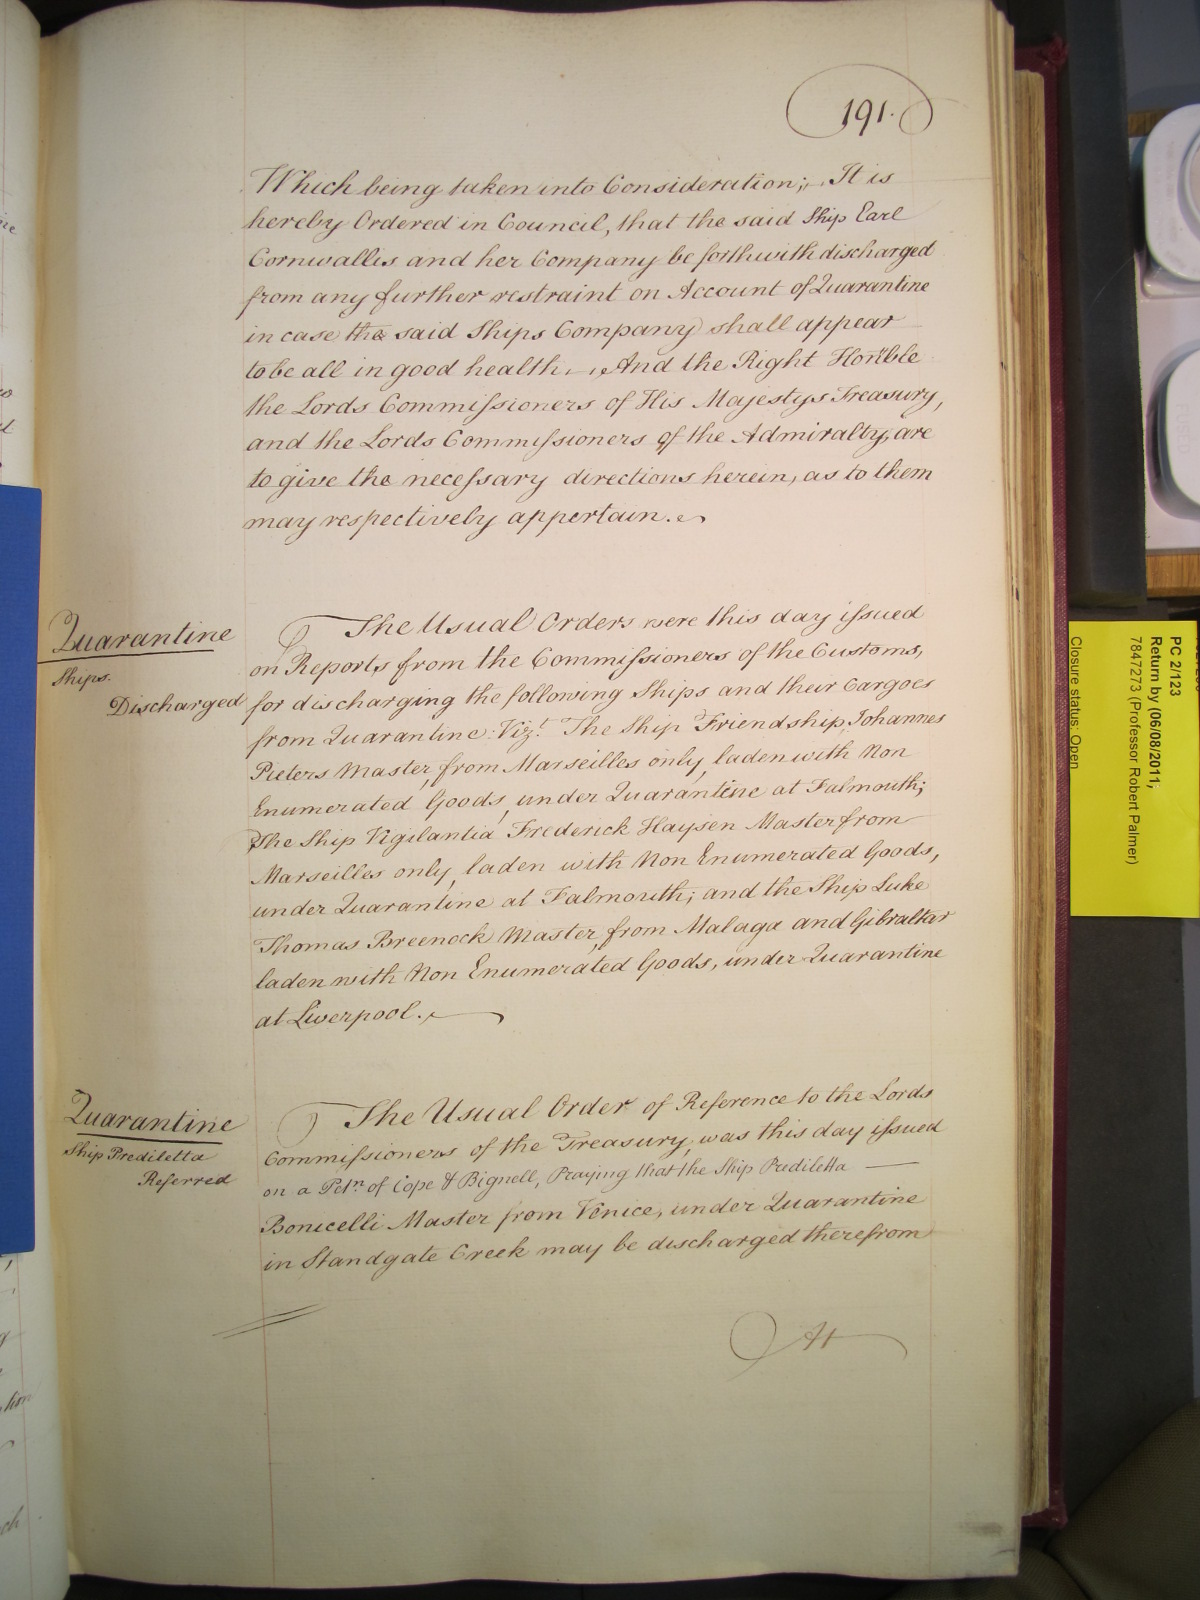 191.
Which being taken into Consideration; It is
hereby Ordered in Council, that the said Ship Earl
Cornwallis and her Company be forthwith discharged
from any further restraint on Account of Quarantine
in case the said Ships Company shall appear
to be all in good health. And the Right Honble
the Lords Commissioners of His Majestys Treasury,
and the Lords Commissioners of the Admiralty, are
to give the necessary directions herein, as to them
may respectively appertain.
Quarantine
Ships
Discharged
The Usual Orders were this day issued
on Reports from the Commissioners of the Customs,
for discharging the following Ships and their Cargoes
from Quarantine Vizt. The Ship Friendship, Johannes
Pieters Master, from Marseilles only, laden with Non
Enumerated Goods, under Quarantine at Falmouth;
The Ship Vigilantia Frederick Haysen Master from
Marseilles only, laden with Non Enumerated Goods,
under Quarantine at Falmouth; and the Ship Luke
Thomas Breenock Master, from Malaga and Gibraltar
laden with Non Enumerated Goods, under Quarantine
at Liverpool.
Quarantine
Ship Prediletta
Referred
The Usual Order of Reference to the Lords
Commissioners of the Treasury, was this day issued
on a Petn. of Cope & Bignell, Praying that the Ship Prediletta —
Bonicelli Master from Venice, under Quarantine
in Standgate Creek may be discharged therefrom
At
PC 2/123
Return by (06/08/2011;
7847273 (Professor Robert Palmer)
Closure status: Open